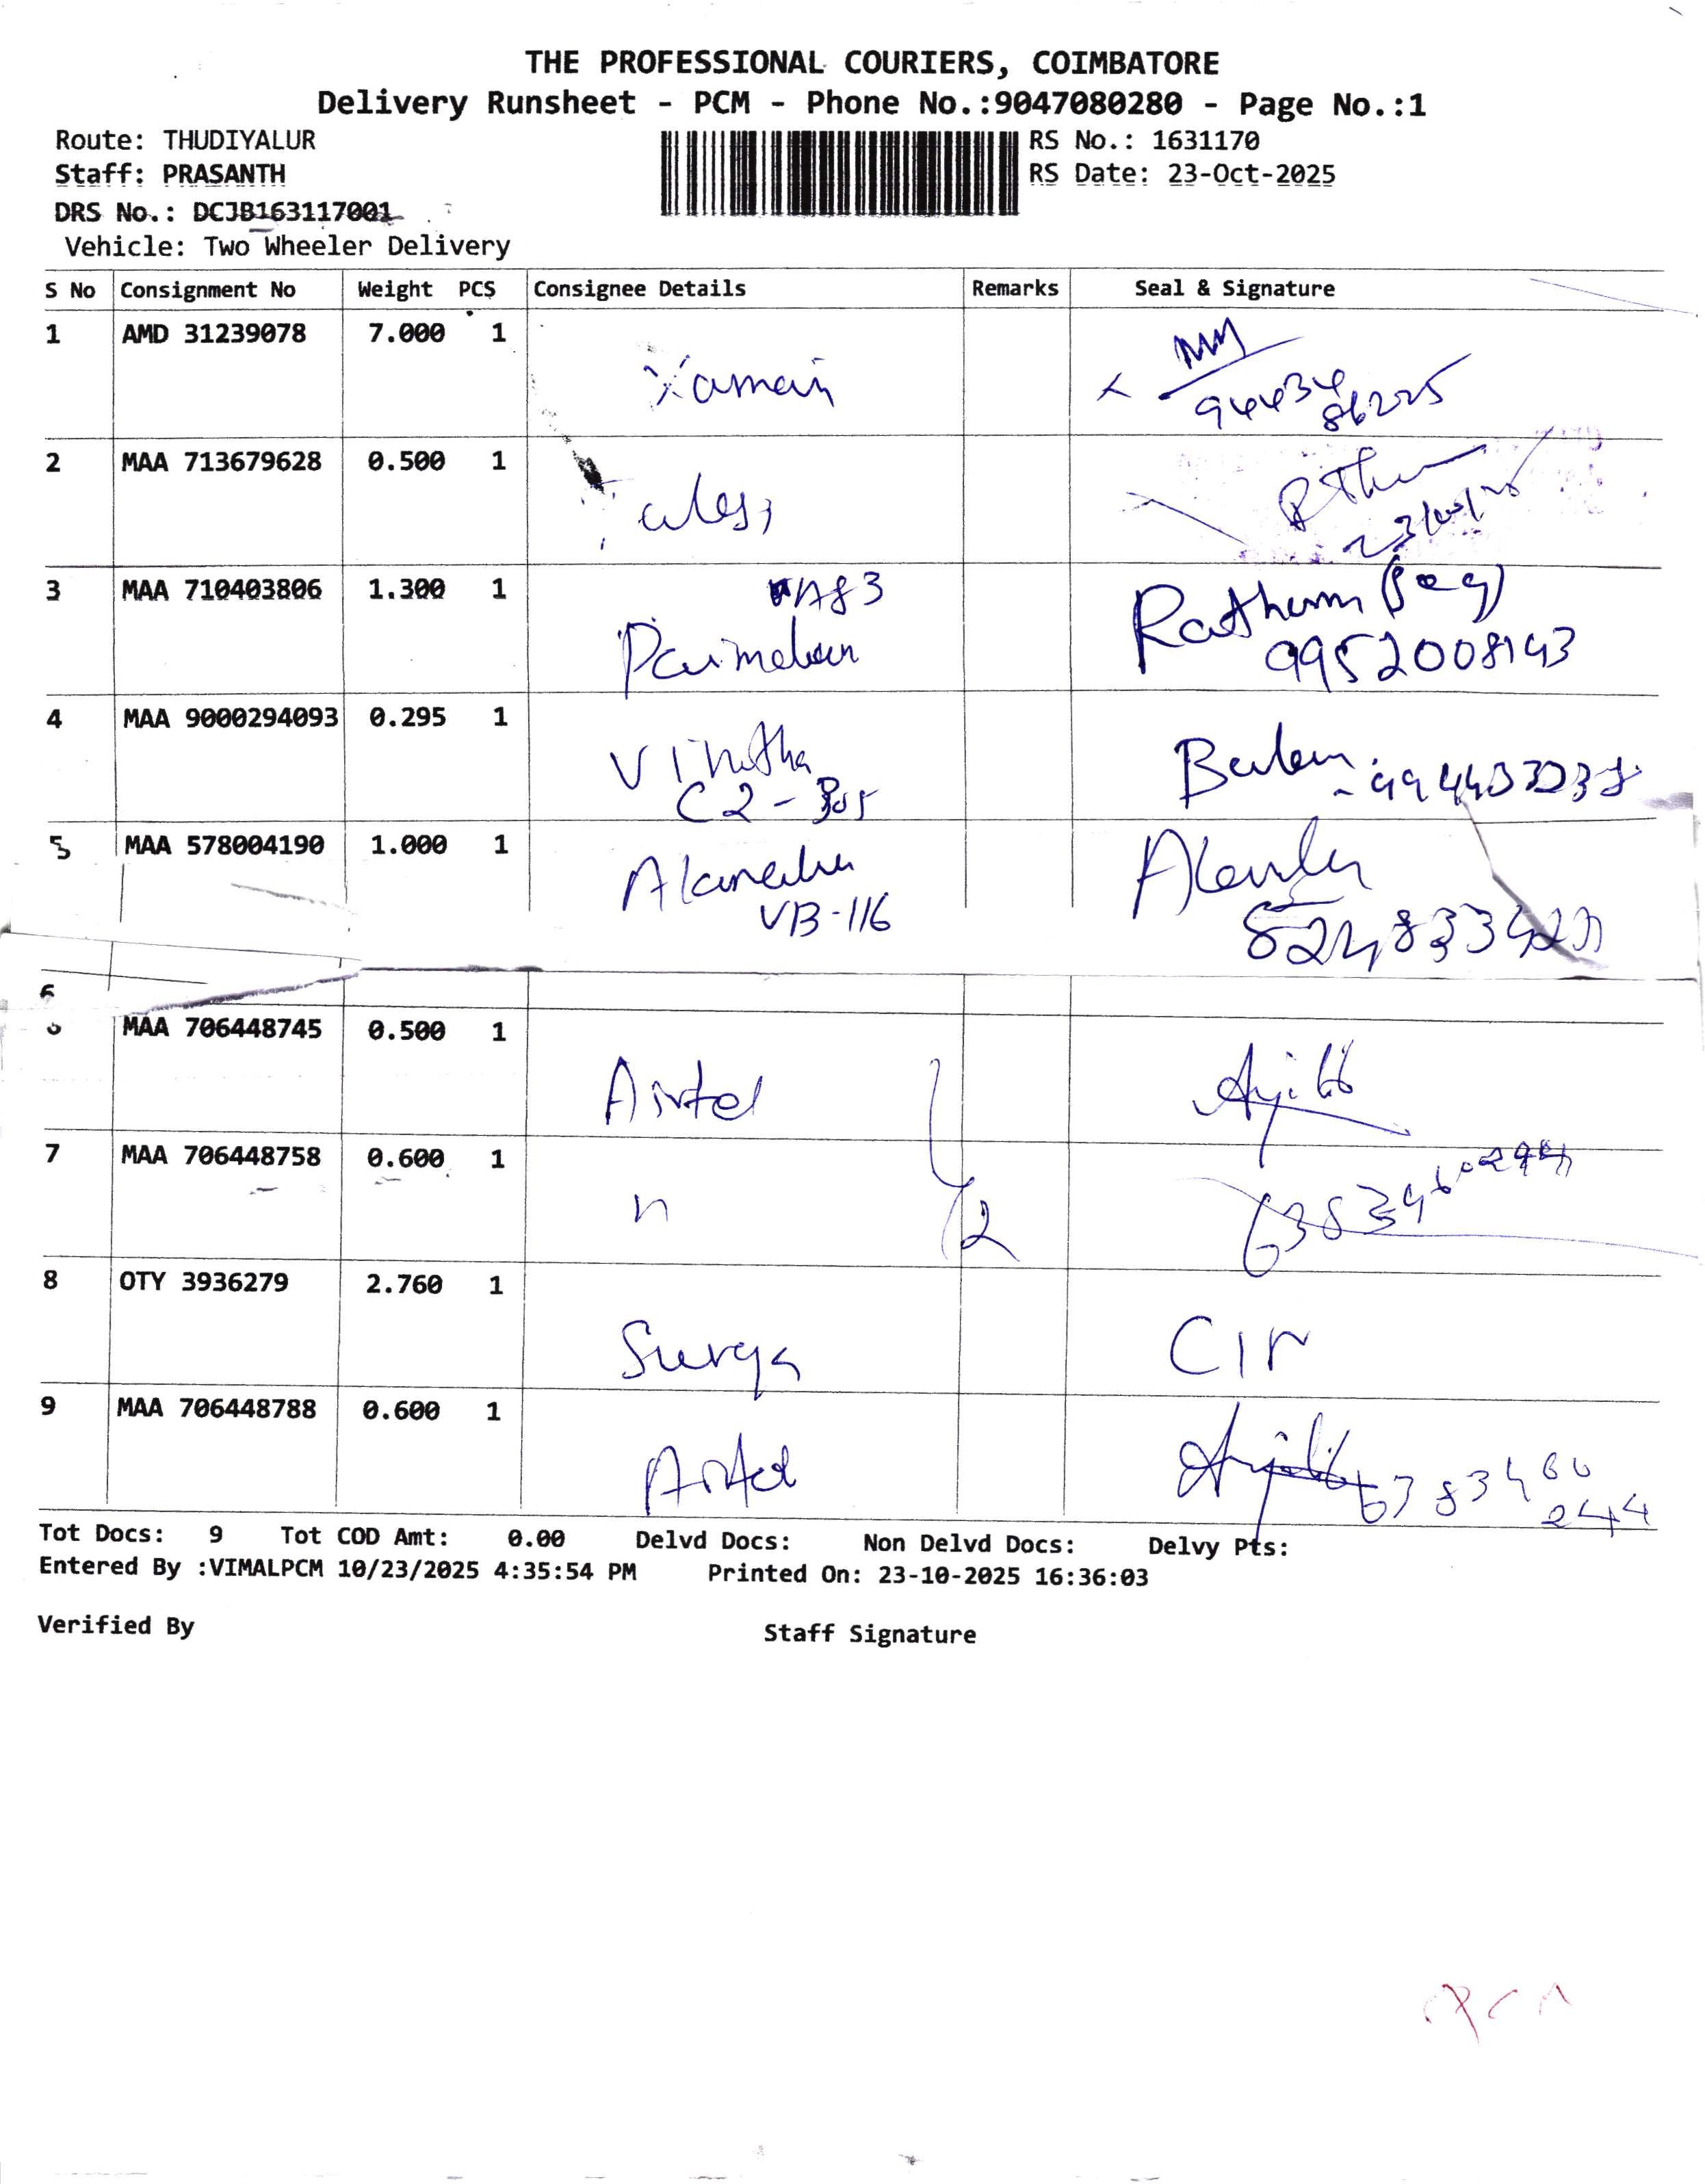 THE PROFESSIONAL COURIERS, COIMBATORE
Delivery Runsheet - PCM - Phone No.:9047080280 - Page No.:1
Route: THUDIYALUR
RS No.: 1631170
Staff: PRASANTH
RS Date: 23-Oct-2025
DRS No.: DCJB163117001
Vehicle: Two Wheeler Delivery
S No Consignment No Weight PCS Consignee Details Remarks Seal & Signature
1 AMD 31239078 7.000 1
2 MAA 713679628 0.500 1
3 MAA 710403806 1.300 1
9952008143
4 MAA 9000294093 0.295 1
Vinitha
5 MAA 578004190 1.000 1
VB-116
6
MAA 706448745 0.500 1
Airtel
7 MAA 706448758 0.600 1
8 OTY 3936279 2.760 1
Surya
9 MAA 706448788 0.600 1
Airtel
Tot Docs: 9 Tot COD Amt: 0.00 Delvd Docs: Non Delvd Docs: Delvy Pts:
Entered By :VIMALPCM 10/23/2025 4:35:54 PM Printed On: 23-10-2025 16:36:03
Verified By
Staff Signature